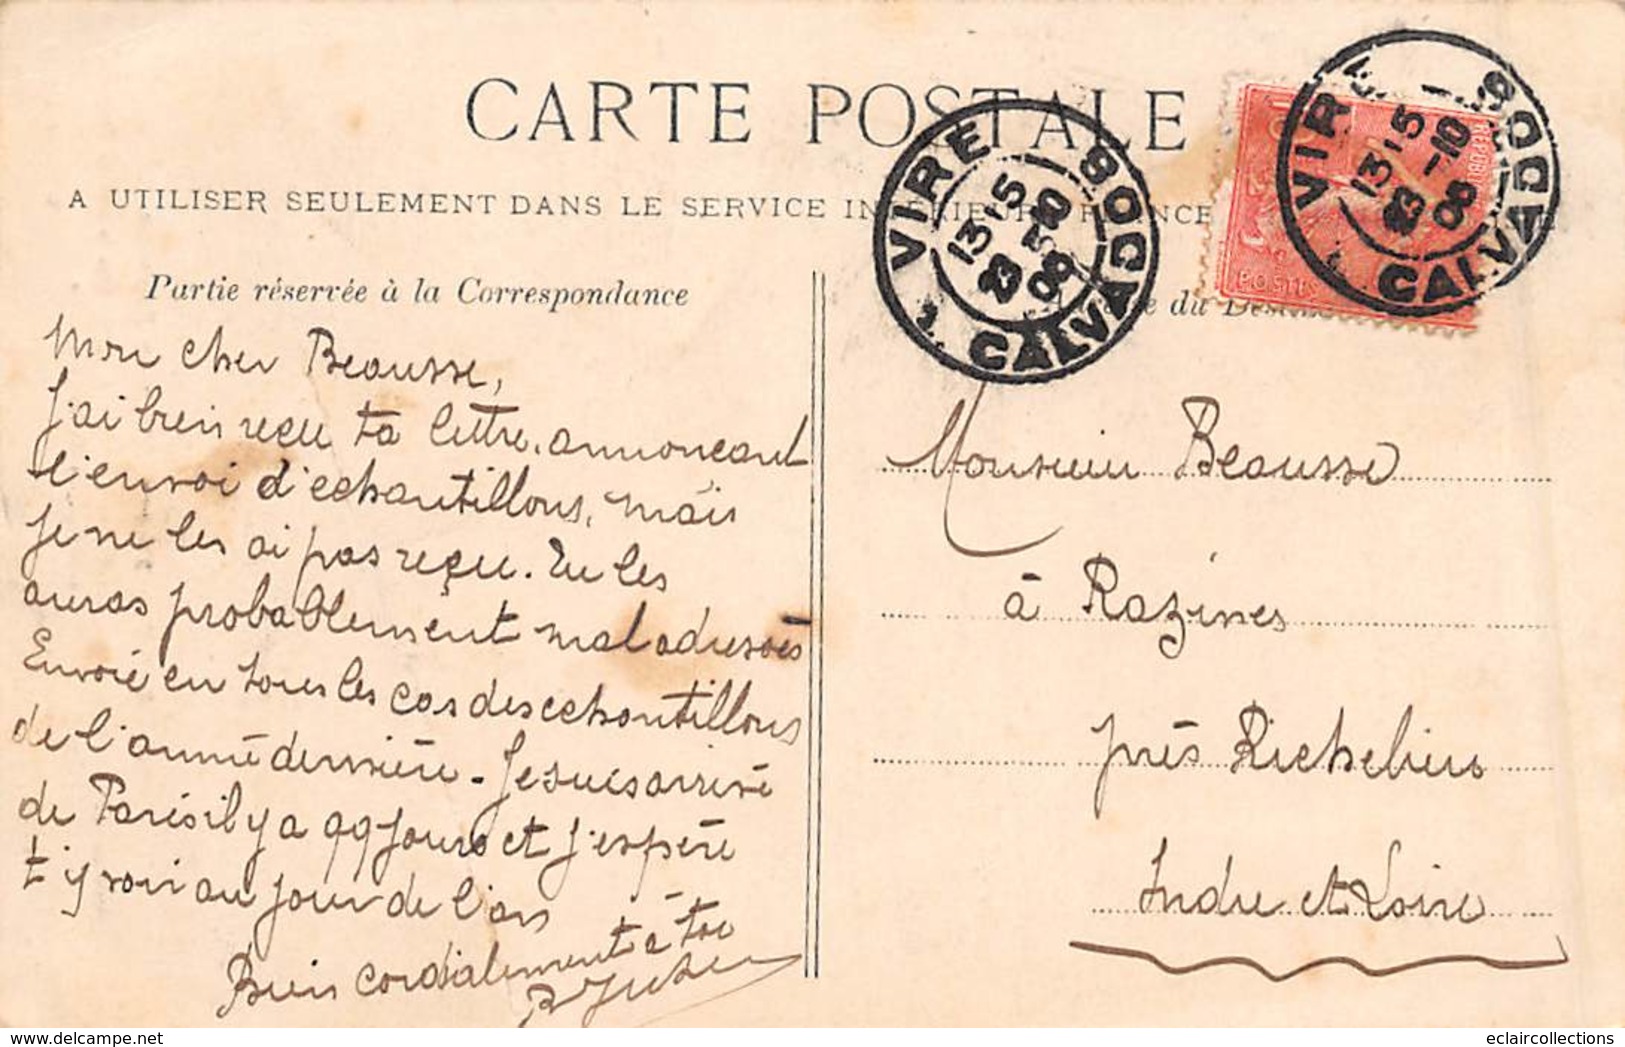 CARTE POSTALE
A UTILISER SEULEMENT DANS LE SERVICE INTÉRIEUR FRANCE
Partie réservée à la Correspondance
Mon cher Beausse,
J'ai bien reçu ta lettre, annonçant
l'envoi d'echantillons, mais
je ne les ai pas reçu. Tu les
auras probablement mal adressés
Envoie en tous les cas des echantillons
de l'année dernière - Je suis arrivé
de Paris il y a 99 jours et j'espère
t'y voir au jour de l'an
Bien cordialement à toi
VIRE
13,5
23 10
08
CALVADOS
REPUB
POSTES
VIRE
13,5
23 -10
08
CALVADOS
Monsieur Beausse
à Razines
près Richelieu
Indre et Loire
eclaircollections